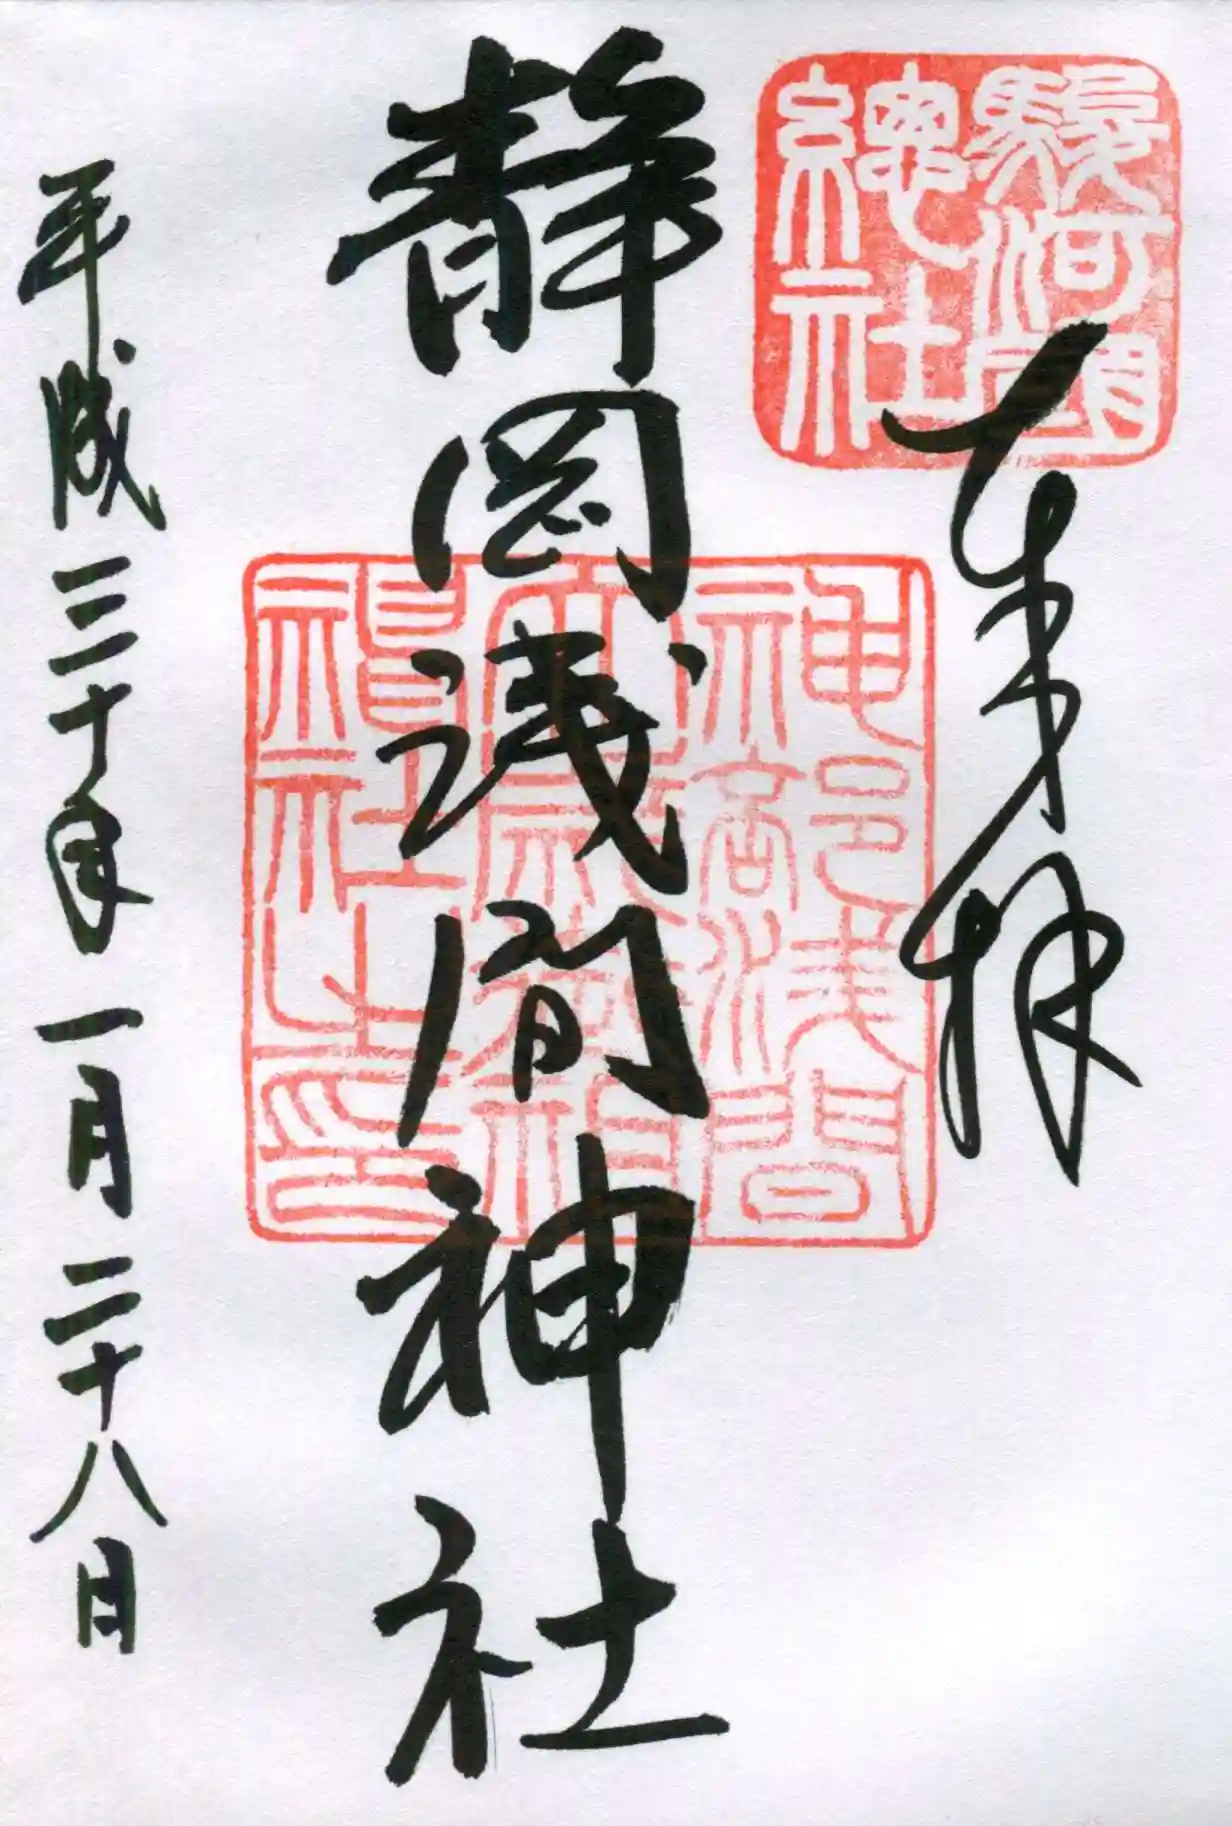 奉拝
駿河國總社
静岡浅間神社
神部浅間
大歳御祖
神社之印
平成三十年一月二十八日